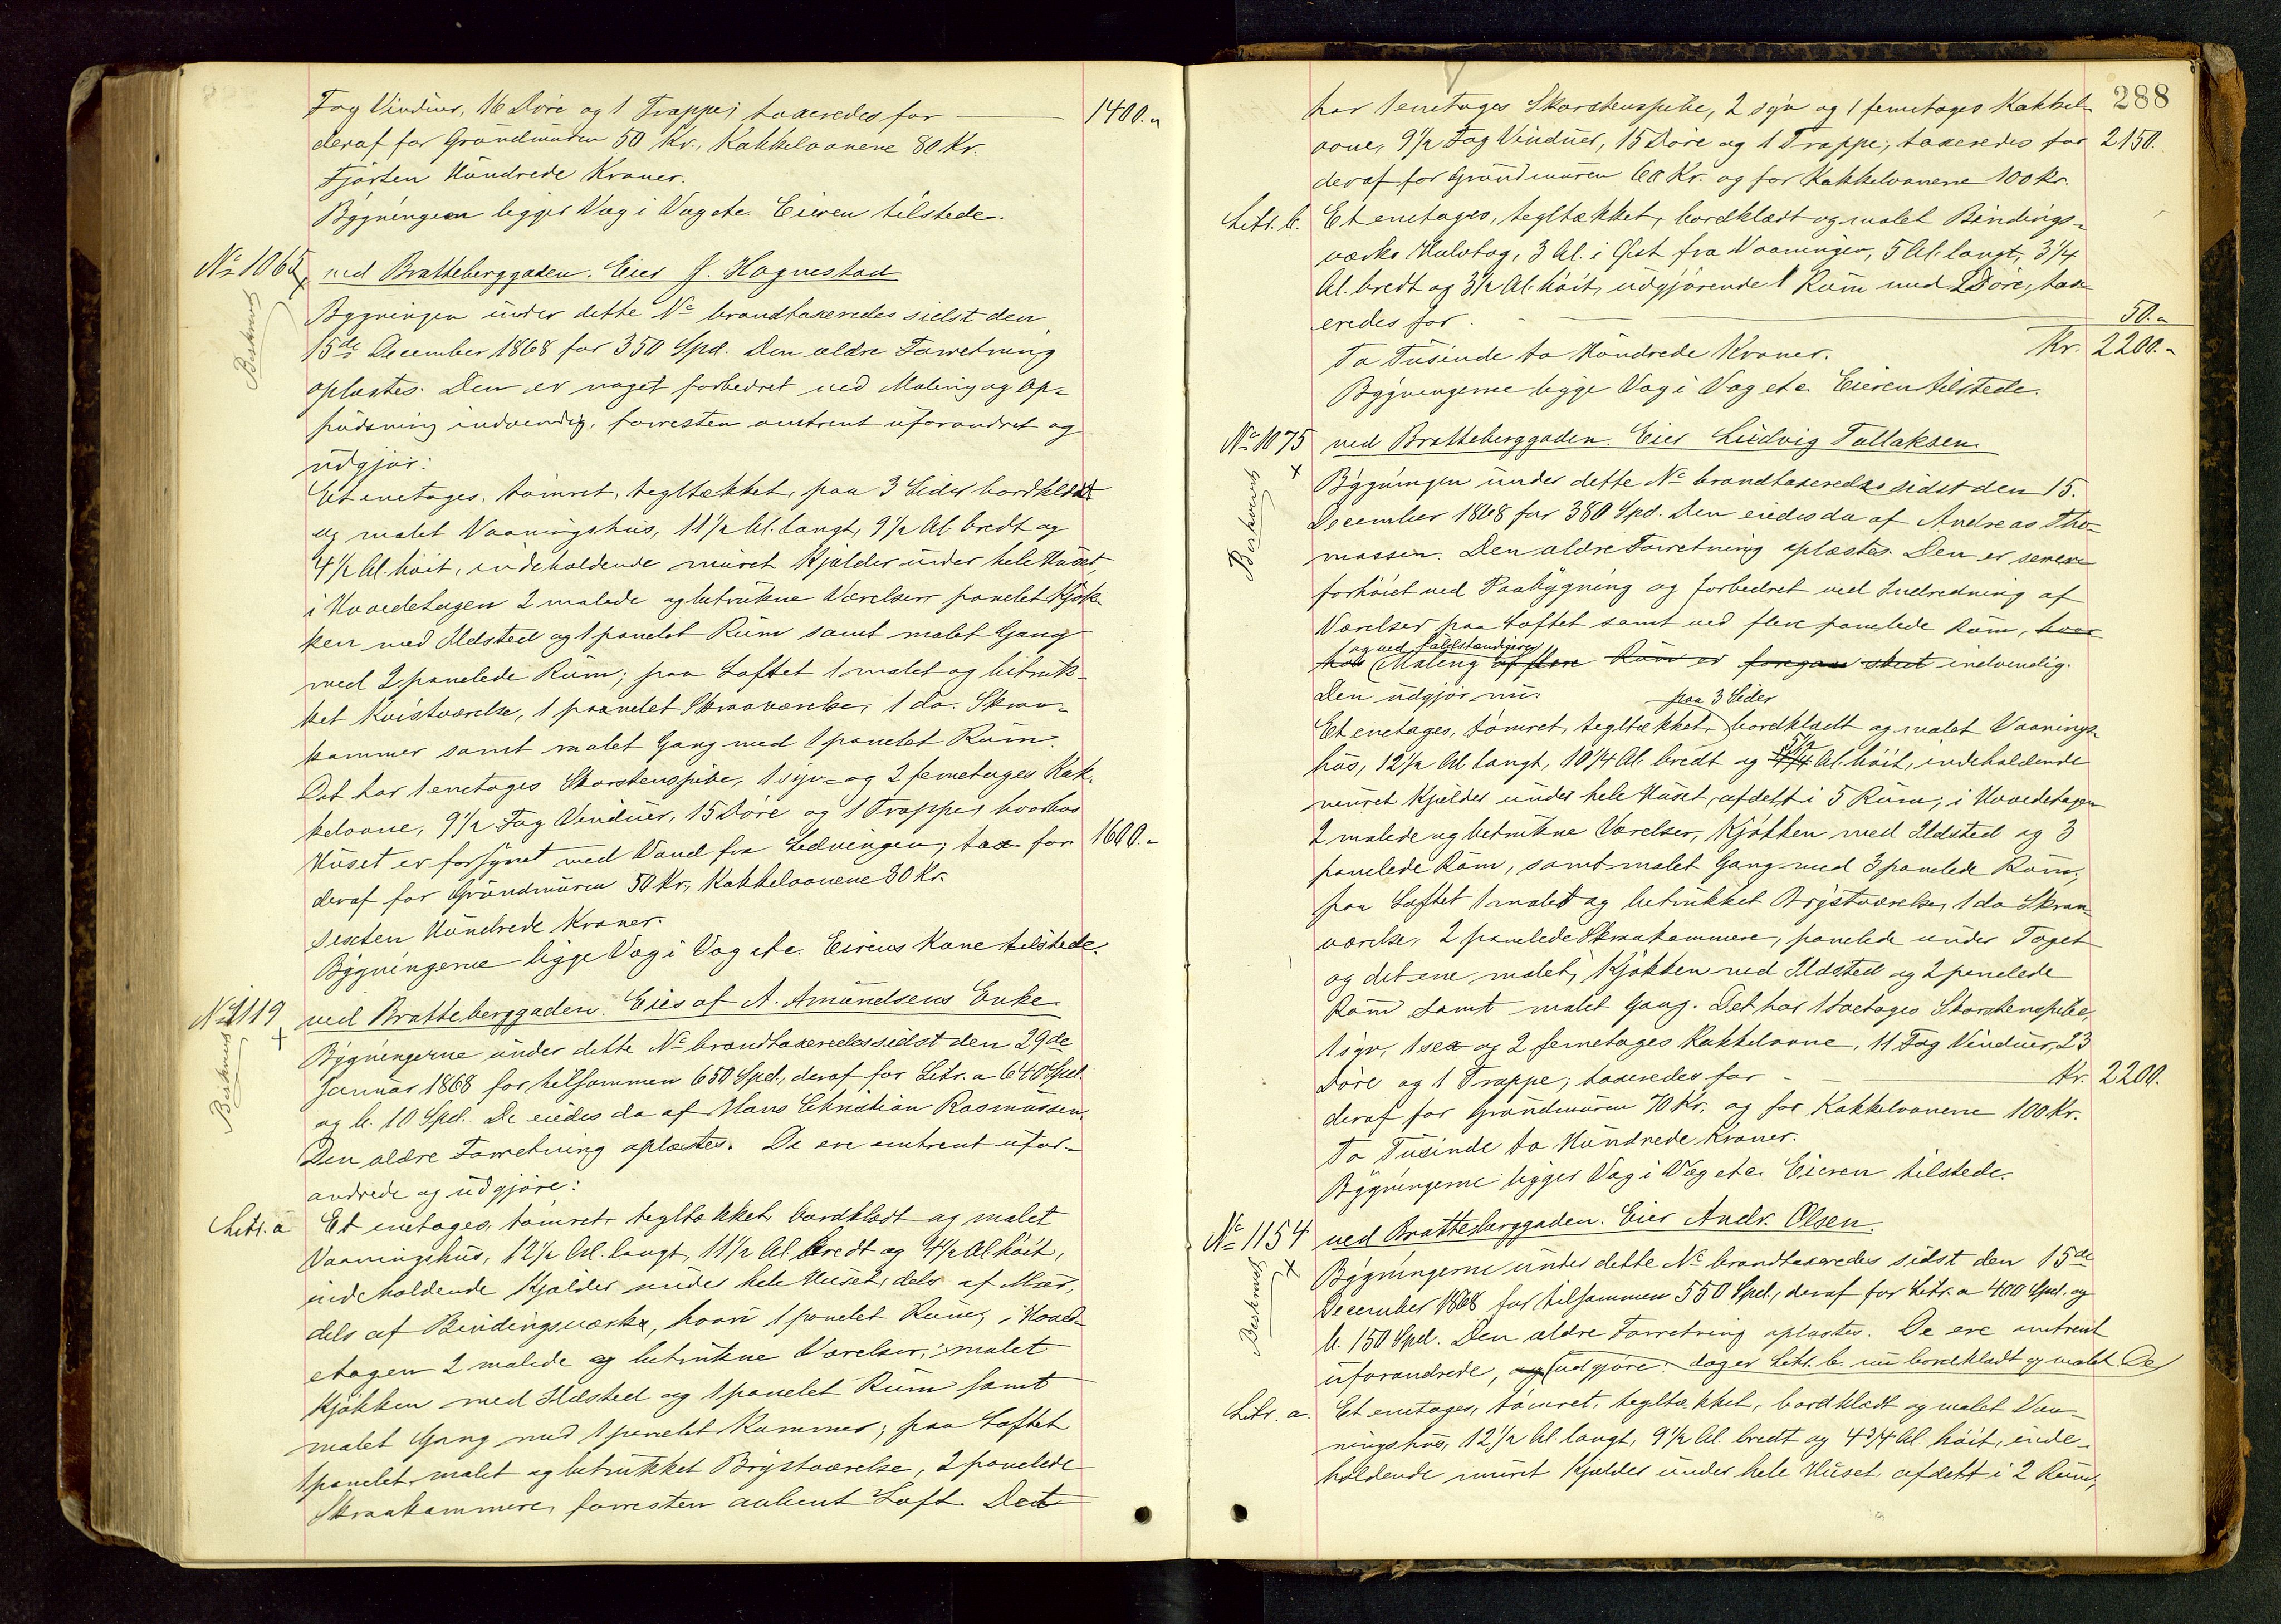 Fag Vinduer, 16 Döre og 1 Trappe; taxeredes for 1400.-
deraf for Grundmuren 50 Kr., Kakkelovnene 80 Kr.
Fjorten Hundrede Kroner.
Bygningen ligger Væg i Væg etc. Eieren tilstede.
No 1065 ved Bratteberggaden. Eier J. Hagnestad
Beskrevet
Bygningen under dette No brandtaxeredes sidst den
15de December 1868 for 350 Spd. Den ældre Forretning
oplæstes. Den er noget forbedret ved Maling og Op-
pudsning indvendig, forresten omtrent uforandret og
udgjör:
Et enetages, tömret, tegltækket, paa 3 Sider bordklædt
og malet Vaaningshus, 11½ Al. langt, 9½ Al. bredt og
4½ Al. höit, indeholdende muret Kjælder under hele Huset
i Hovedetagen 2 malede og betrukne Værelser, panelet Kjök-
ken med Ildsted og 1 panelet Rum samt malet Gang
med 2 panelede Rum; paa Loftet 1 malet og betruk-
ket Kvistværelse, 1 panelet Skraaværelse, 1 do. Skraa-
kammer samt malet Gang med 1 panelet Rum.
Det har 1 enetages Skorstenspibe, 1 syv- og 2 femetages Kak-
kelovne, 9½ Fag Vinduer, 15 Döre og 1 Trappe, hvorhos
Huset er forsynet med Vand fra Ledningen; tax for 1600.-
deraf for Grundmuren 50 Kr., Kakkelovnene 80 Kr.
Sexten Hundrede Kroner.
Bygningerne ligge Væg i Væg etc. Eierens Kone tilstede.
No 1119 ved Bratteberggaden. Eies af A. Amundsens Enke
Beskrevet
Bygningerne under dette No brandtaxeredes sidst den 29de
Januar 1868 for tilsammen 650 Spd., deraf for Litr. a 640 Spd.
og b. 10 Spd. De eiedes da af Hans Christian Rasmussen.
Den ældre Forretning oplæstes. De ere omtrent ufor-
andrede og udgjöre:
Litr. a Et enetages, tömret, tegltækket, bordklædt og malet
Vaaningshus, 12½ Al. langt, 11½ Al. bredt og 4½ Al. höit,
indeholdende Kjælder under hele Huset, dels af Mur,
dels af Bindingsværk, hvori 1 panelet Rum; i Hoved-
etagen 2 malede og betrukne Værelser, malet
Kjökken med Ildsted og 1 panelet Rum samt
malet Gang med 1 panelet Kammer; paa Loftet
1 panelet, malet og betrukket Brystværelse, 2 panelede
Skraakammere, forresten aabent Loft. Det
288
har 1 enetages Skorstenspibe, 2 syv og 1 femetages Kakkel-
ovne, 9½ Fag Vinduer, 15 Döre og 1 Trappe; taxeredes for 2150.
deraf for Grundmuren 60 Kr. og for Kakkelovnene 100 Kr.
Litr. b. Et enetages, tegltækket, bordklædt og malet Bindings-
værks Halvtag, 3 Al. i Öst fra Vaaningen, 5 Al. langt, 3¼
Al. bredt og 3½ Al. höit, udgjörende 1 Rum med 2 Döre, tax-
eredes for 50.-
To Tusinde to Hundrede Kroner. Kr. 2200.-
Bygningerne ligge Væg i Væg etc. Eieren tilstede.
No 1075 ved Bratteberggaden. Eier Ludvig Tallaksen.
Beskrevet
Bygningen under dette No brandtaxeredes sidst den 15.
December 1868 for 380 Spd. Den eiedes da af Andreas Tho-
massen. Den ældre Forretning oplæstes. Den er senere
forhöiet ved Paabygning og forbedret ved Indredning af
Værelser paa Loftet samt ved flere panelede Rum, hvor
og ved fuldstændigere
hos Maling af flere Rum er foregaaet indvendig.
Den udgjör nu:
paa 3 Sider
Et enetages, tömret, tegltækket, bordklædt og malet Vaanings-
hus, 12½ Al. langt, 10¼ Al. bredt og 5½ Al. höit, indeholdende
muret Kjælder under hele Huset, afdelt i 5 Rum; i Hovedetagen
2 malede og betrukne Værelser, Kjökken med Ildsted og 3
panelede Rum, samt malet Gang med 3 panelede Rum;
paa Loftet 1 malet og betrukket Brystværelse, 1 do Skraa-
værelse, 2 panelede Skraakammere, panelede under Taget
og det ene malet, Kjökken med Ildsted og 2 panelede
Rum samt malet Gang. Det har 1 toetages Skorstenspibe,
1 syv, 1 sex og 2 femetages Kakkelovne, 11 Fag Vinduer, 23
Döre og 1 Trappe; taxeredes for Kr. 2200.
deraf for Grundmuren 70 Kr. og for Kakkelovnene 100 Kr.
To Tusinde to Hundrede Kroner.
Bygningerne ligger Væg i Væg etc. Eieren tilstede.
No 1154 ved Bratteberggaden. Eier Andr. Olsen.
Beskrevet
Bygningerne under dette No brandtaxeredes sidst den 15de
December 1868 for tilsammen 550 Spd., deraf for Litr. a 400 Spd. og
b. 150 Spd. Den ældre Forretning oplæstes. De ere omtrent
uforandrede, og udgjöre: dog er Litr. b. nu bordklædt og malet. De
Litr. a. Et enetages, tömret, tegltækket, bordklædt og malet Vaa-
ningshus, 12½ Al. langt, 9½ Al. bredt og 4¾ Al. höit, inde-
holdende muret Kjælder under hele Huset, afdelt i 2 Rum,